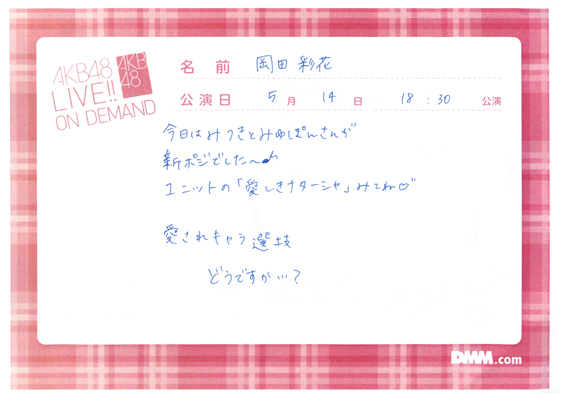 AKB48
LIVE!!
ON DEMAND
AKB
48
名前 岡田彩花
公演日 5月14日 18:30 公演
今日はみつきとみゆぽんさんが
新ポジでした〜♪
ユニットの「愛しきナターシャ」みてね♡
愛されキャラ選抜
どうですか…?
DMM.com